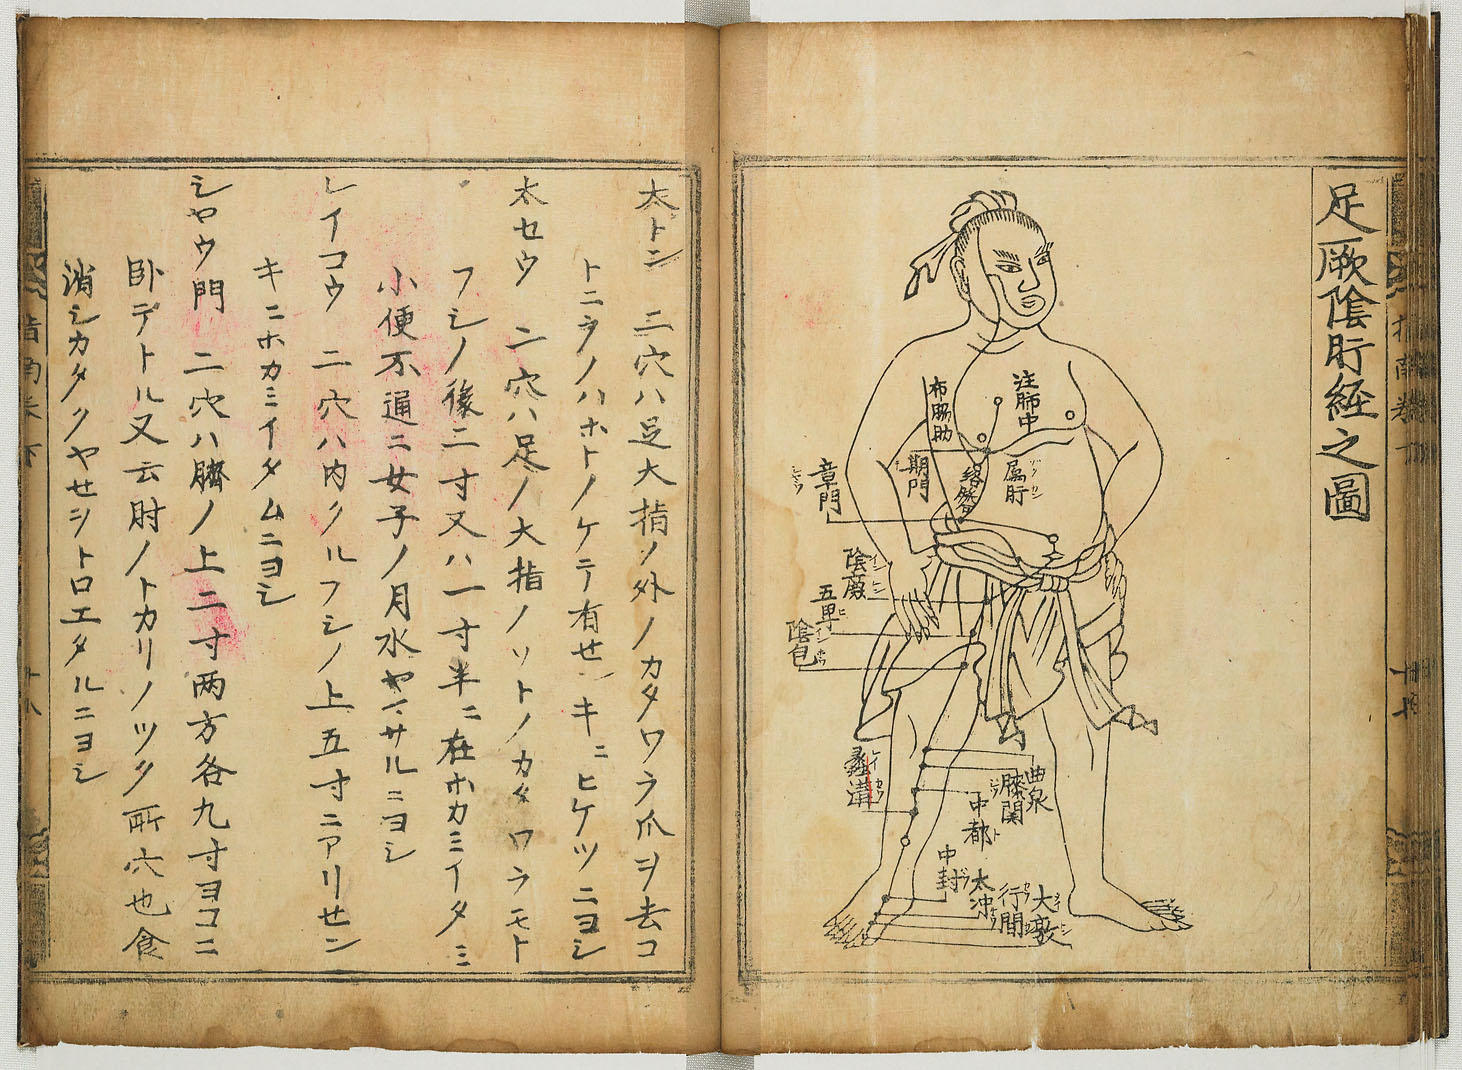 足厥陰肝經之圖
注肺中
布脇肋
期門
屬肝
絡膽
章門
陰廉
五里
陰包
曲泉
膝関
中都
蠡溝
中封
太冲
行間
大敦
太トン 二穴ハ足大指ノ外ノカタワラ爪ヲ去コ
トニラノハホトノケテ有せンキニヒケツニヨシ
太セウ 二穴ハ足ノ大指ノソトノカタワラモト
フシノ後二寸又ハ一寸半ニ在ホカミイタミ
小便不通ニ女子ノ月水ヤマサルニヨシ
レイコウ 二穴ハ内クルフシノ上五寸ニアリせン
キニホカミイタムニヨシ
シヤウ門 二穴ハ臍ノ上二寸两方各九寸ヨコニ
卧テトル又云肘ノトカリノツク所穴也食
消シカタクヤせヲトロエタルニヨシ